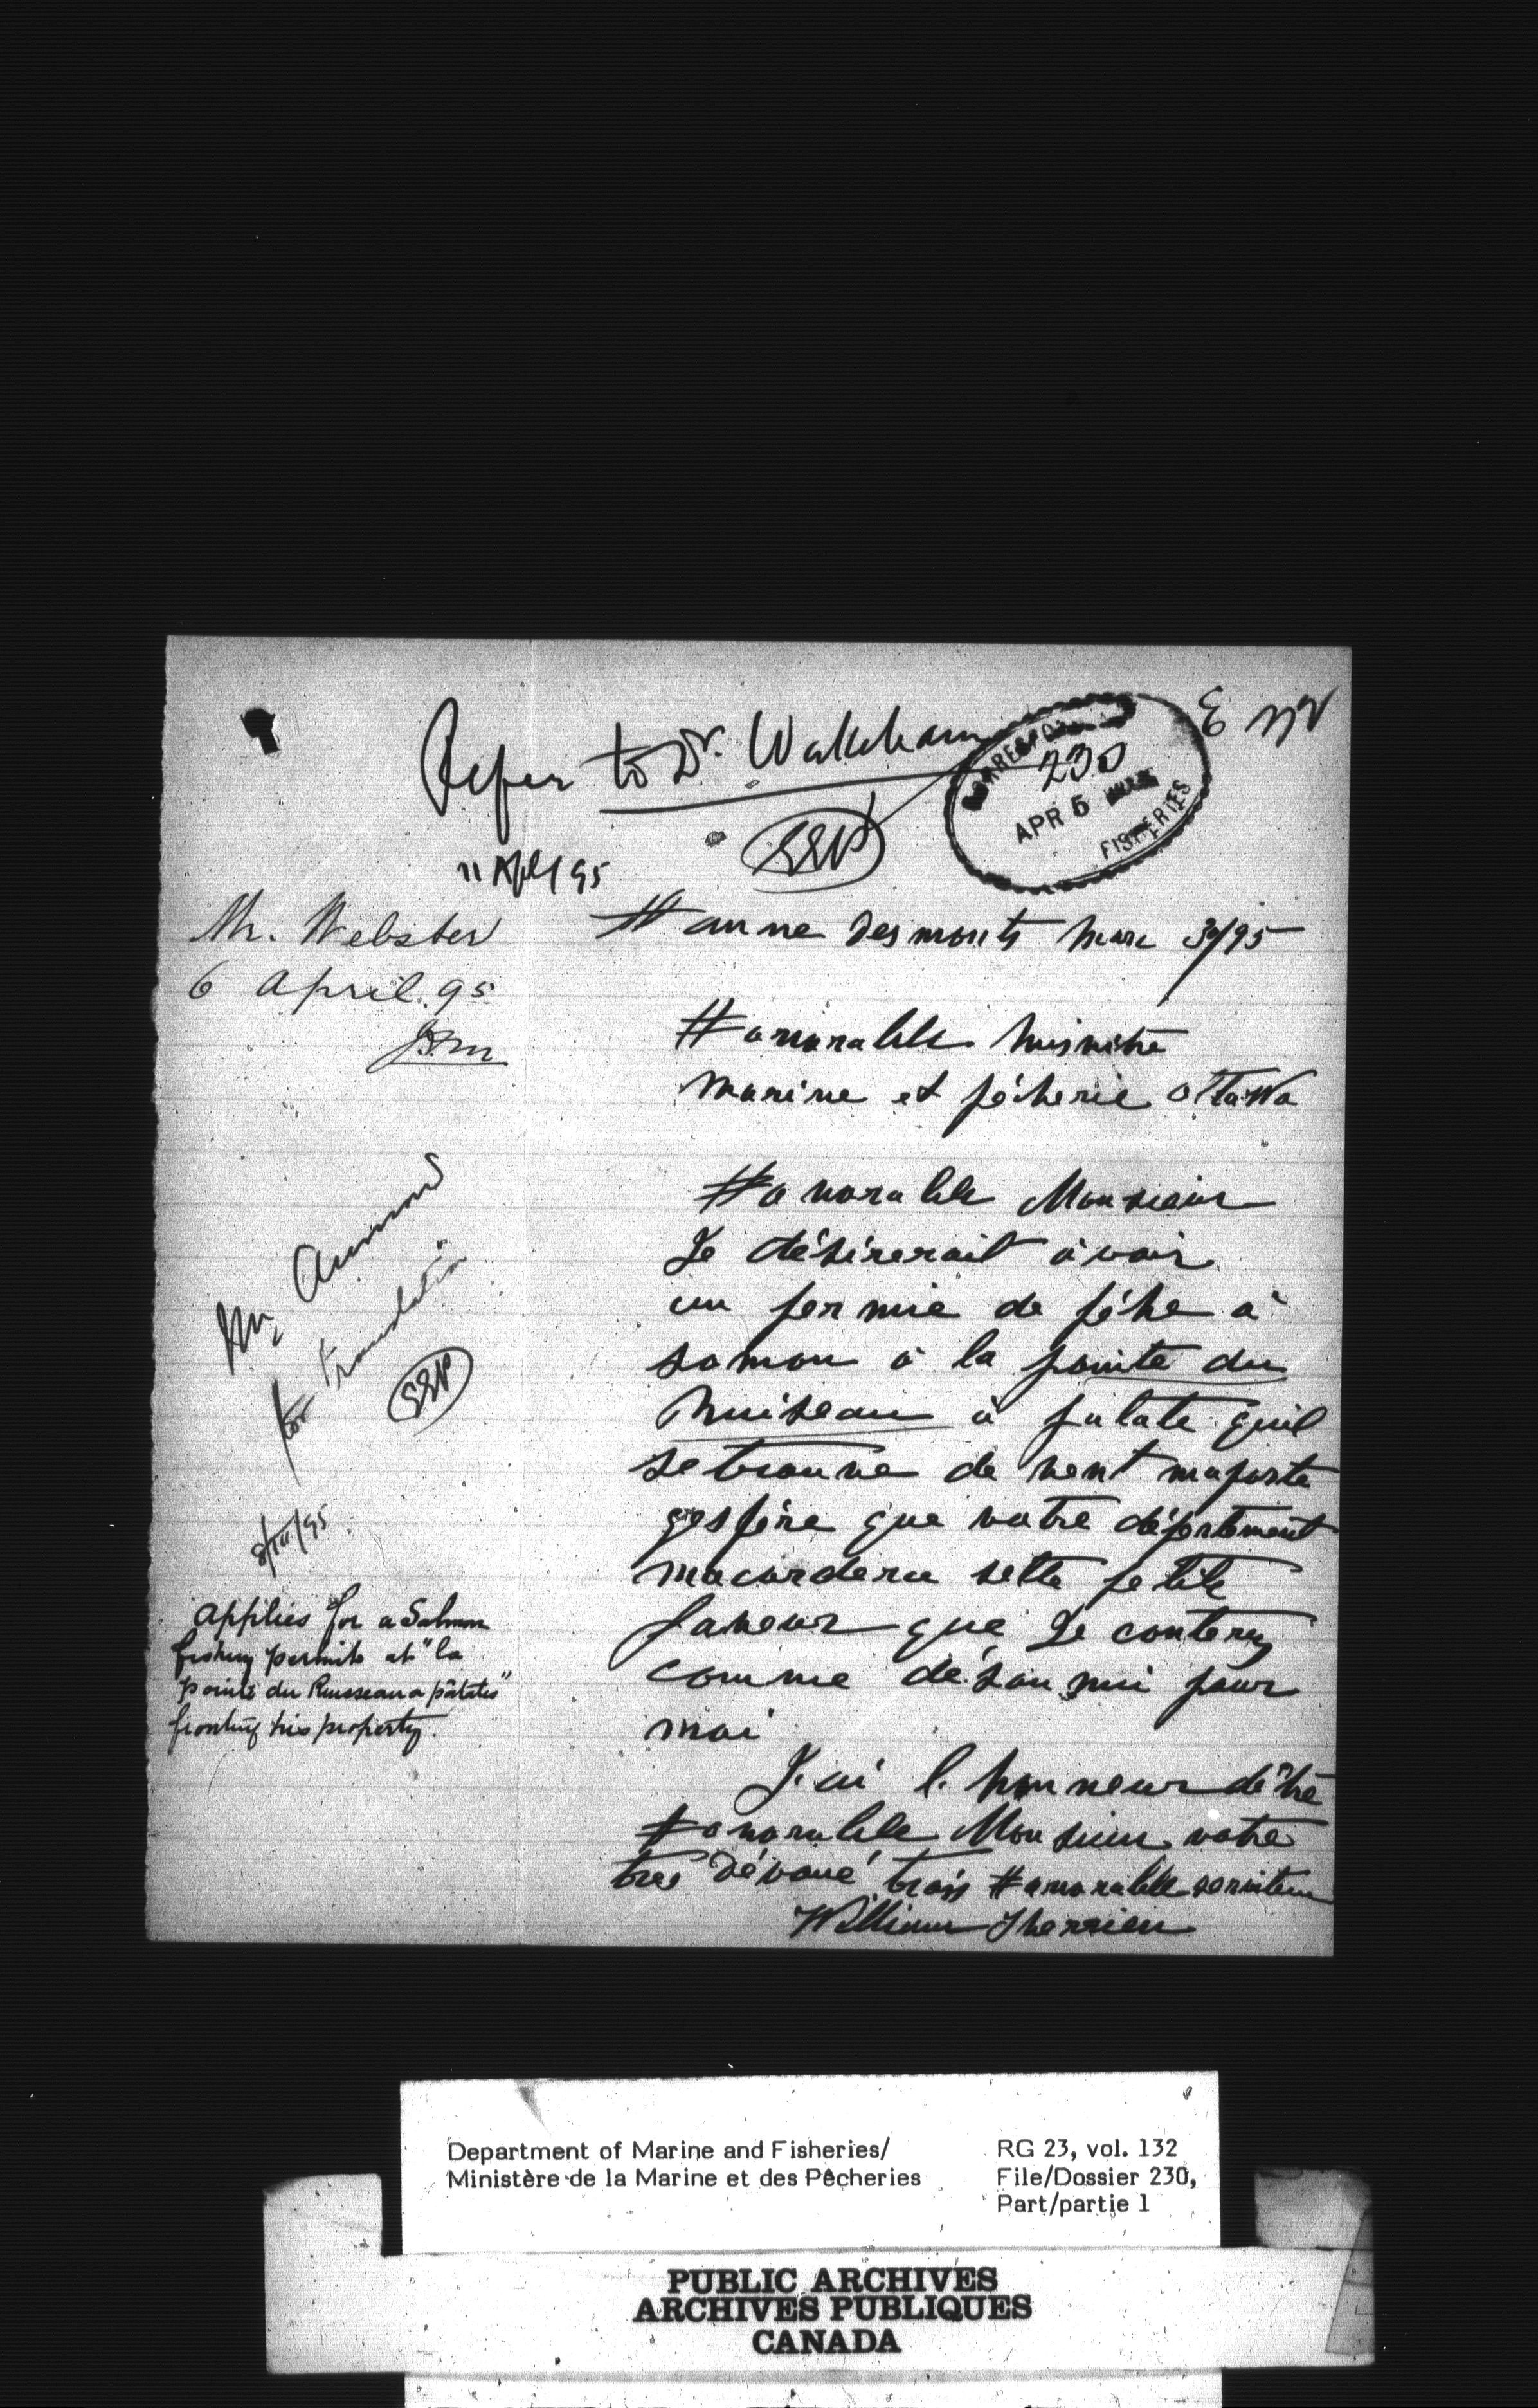 Refer to Dr. Wakeham
CORRESPON
230
APR 5
FISHERIES
SSP
11 Apl/95
Mr. Webster
6 April 95
anne des monts Mars 30/95
Honorable Ministre
Marine et pécherie Ottawa
Honorable Monsieur
Je désirerait àvoir
un permie de péhe à
somon à la pointe du
Ruiseau à patate quil
se trouve de vent ma porte
gespére que votre département
macordera sette petite
faveur que Je conterez
comme de
pour
moi
J.ai l. honneur dêtre
Honorable Monsieur votre
tres Dévoué trais Honorable serviteur
William Therrien
Mr.
for translation
SSP
95
Applies for a Salmon
fishing permit at "la
pointe du Ruisseau a patates"
fronting his property.
Department of Marine and Fisheries/
Ministère de la Marine et des Pêcheries
RG 23, vol. 132
File/Dossier 230,
Part/partie 1
PUBLIC ARCHIVES
ARCHIVES PUBLIQUES
CANADA